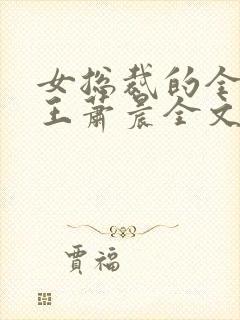 女总裁的全
王萧晨全文
贾福